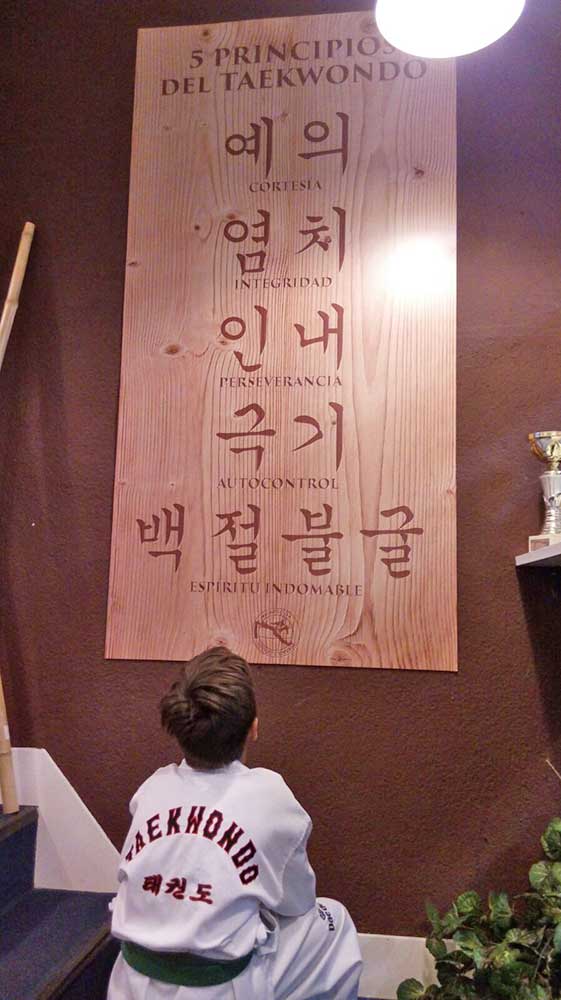 5 PRINCIPIOS
DEL TAEKWONDO
예의
CORTESIA
염치
INTEGRIDAD
인내
PERSEVERANCIA
극기
AUTOCONTROL
백절불굴
ESPIRITU INDOMABLE
TAEKWONDO
태권도